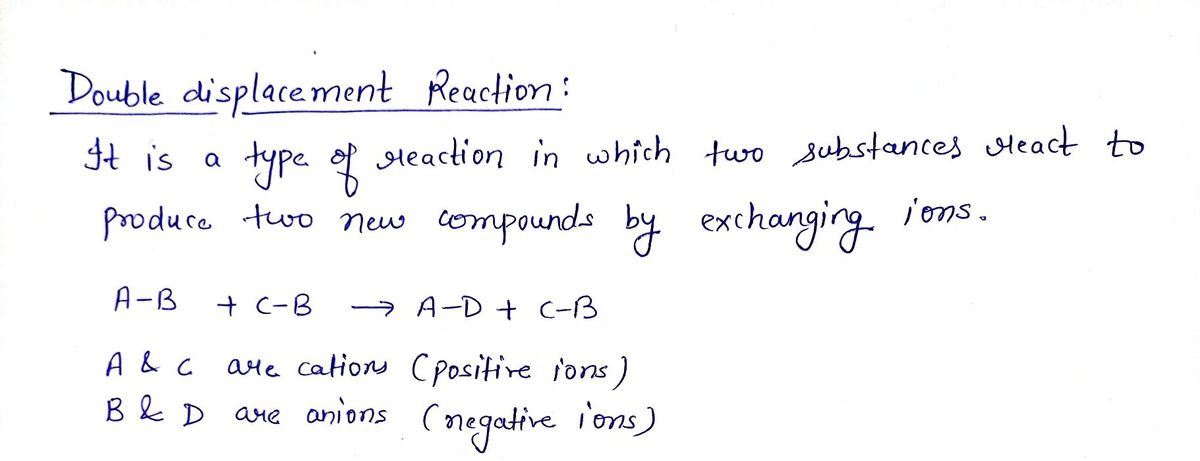 Double displacement Reaction:
It is a type of reaction in which two substances react to
produce two new compounds by exchanging ions.
A-B + C-B → A-D + C-B
A & C are cations (positive ions)
B & D are anions (negative ions)